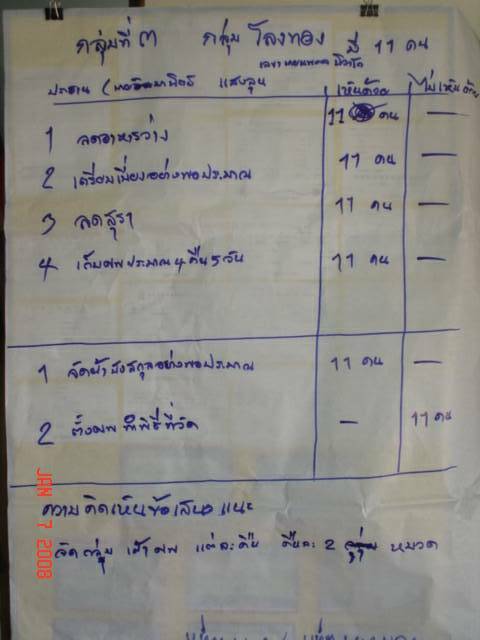 กลุ่มที่ ๓ กลุ่ม โลงทอง มี 11 คน
ประธาน แสงลุน เห็นด้วย ไม่เห็นด้วย
1 ลดอาหารว่าง 11 คน —
2 เตรียมเมี่ยงอย่างพอประมาณ 11 คน —
3 ลดสุรา 11 คน —
4 เก็บศพประมาณ ๔ คืน ๕ วัน 11 คน —
1 จัดผ้าบังสกุลอย่างพอประมาณ 11 คน —
2 ตั้งศพทำพิธีที่วัด — 11 คน
ความคิดเห็นข้อเสนอแนะ
จัดกลุ่ม เฝ้าศพ แต่ละคืน คืนละ 2 หมวด
JAN 7 2008